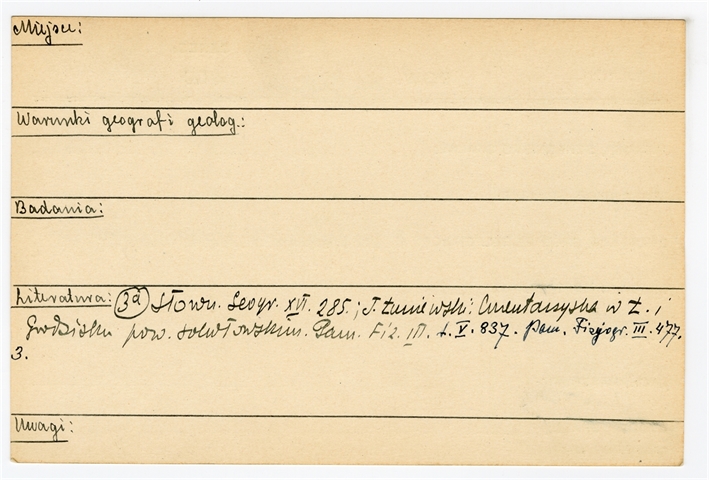 Miejsce:
Warunki geograf i geolog.:
Badania:
Literatura: 3a Słown. Geogr. XVI. 285.; J. Łuniewski: Cmentarzyska w Ł. i
Grodzisku pow. sokołowskim. Pam. Fiz. III. t. V. 837. Pam. Fizjogr. III. 477.
3.
Uwagi: